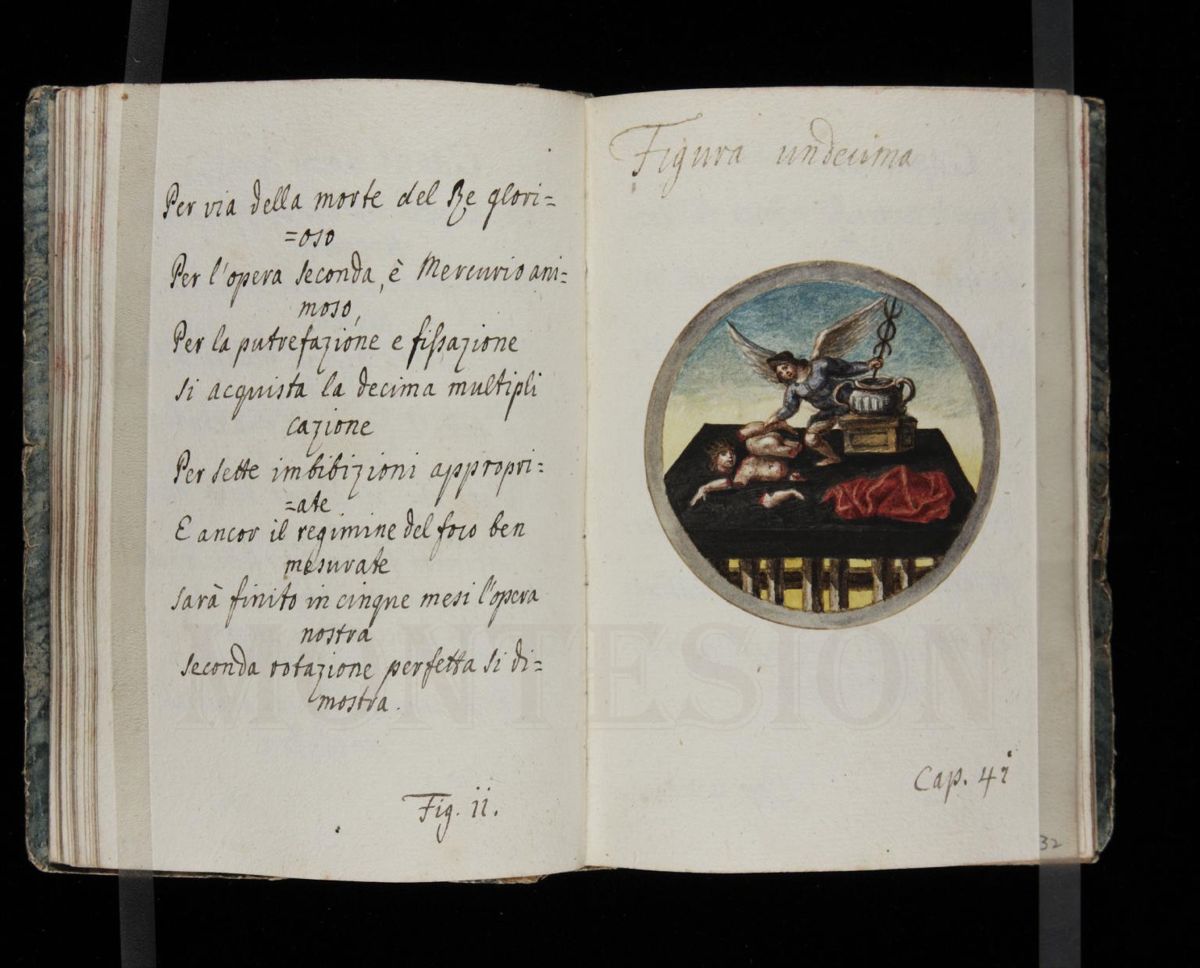 Per via della morte del Re glori=
=oso
Per l'opera seconda, è Mercurio ani=
moso,
Per la putrefazione e fissazione
si acquista la decima multipli
cazione
Per sette imbibizioni appropri=
=ate
E ancor il regimine del foco ben
mesurate
sarà finito in cinque mesi l'opera
nostra
seconda rotazione perfetta si di=
mostra.
Fig. ii.
Figura undecima
Cap. 47
32
MONTESION